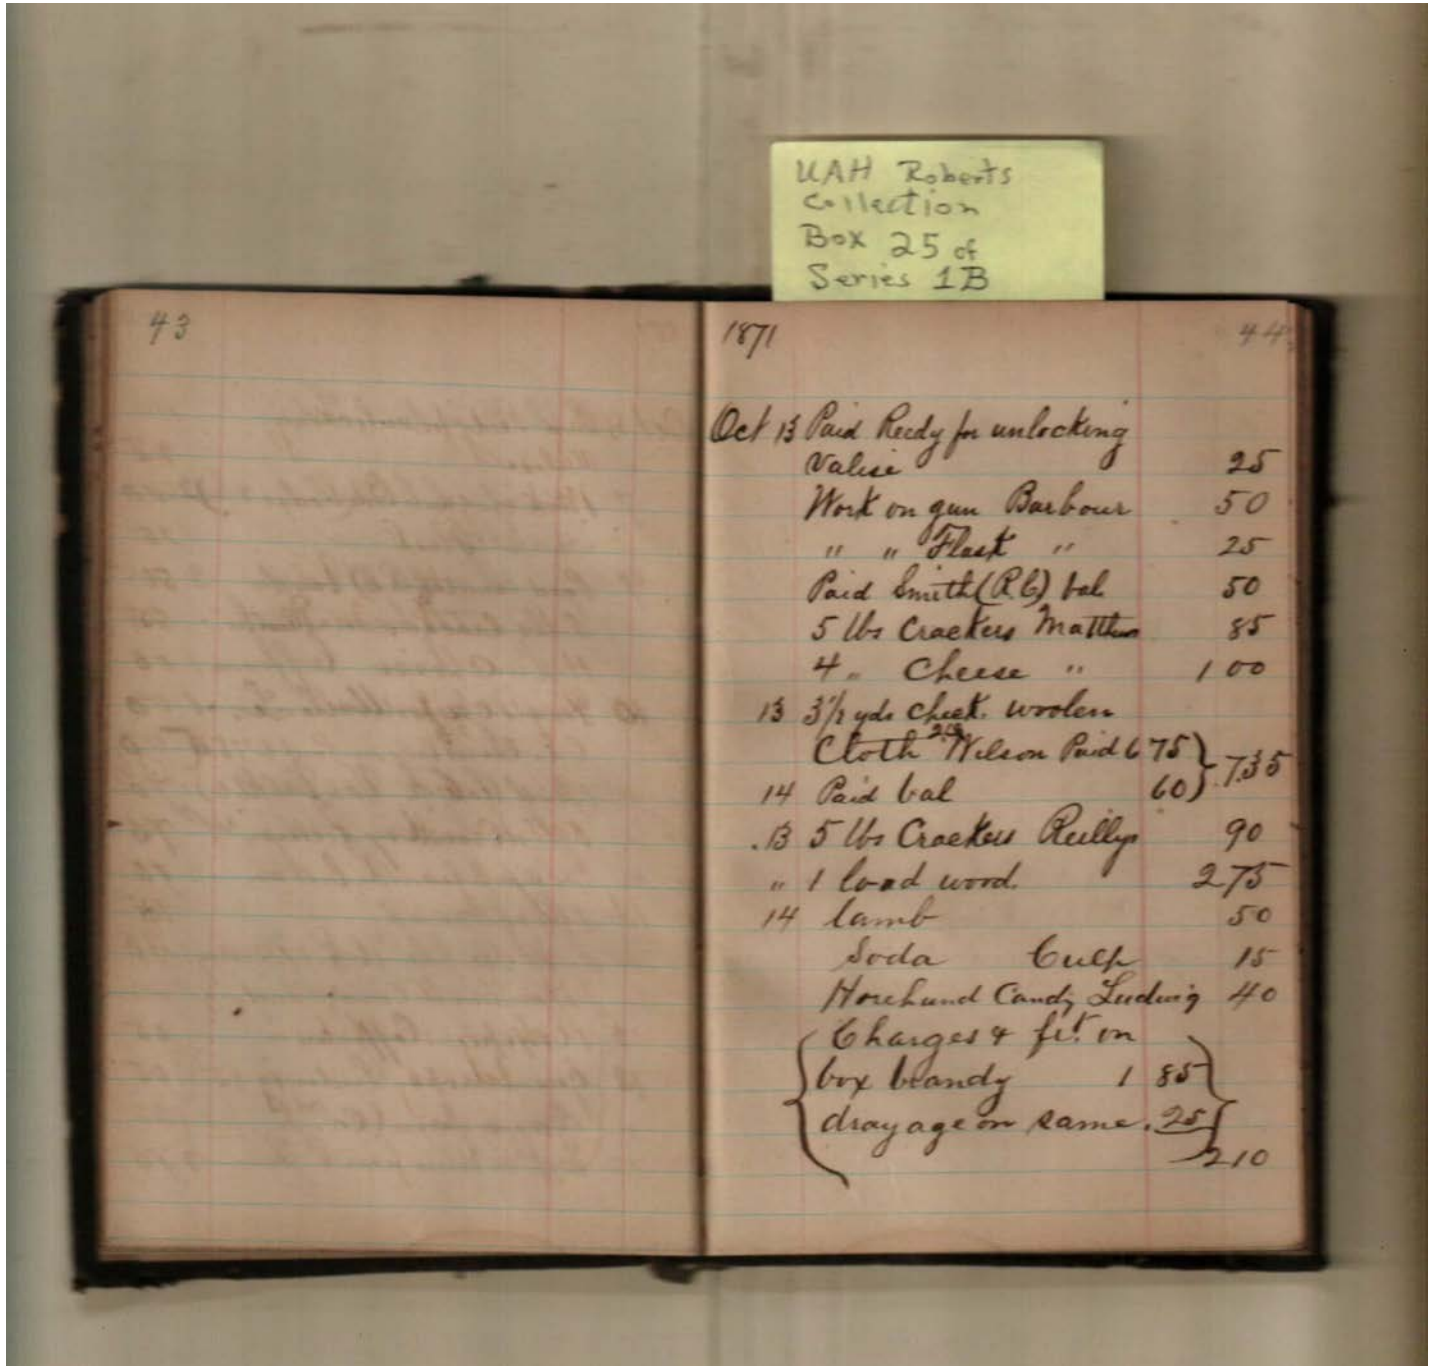 UAH Roberts
Collection
Box 25 of
Series 1B
43
1871 44
Oct 13 Paid Reedy for unlocking
Valise 25
Work on gun Barbour 50
" " Flask " 25
Paid Smith (R.C.) bal 50
5 lbs Crackers Matthews 85
4 " Cheese " 1 00
13 3 1/2 yds check. woolen
Cloth Wilson Paid 6 75 } 7.35
14 Paid bal 60 }
13 5 lbs Crackers Reillys 90
" 1 load wood. 2 75
14 lamb 50
Soda Culp 15
Horehund Candy Ludwig 40
{ Charges & frt. on
box brandy 1 85 }
drayage on same. 25
2 10